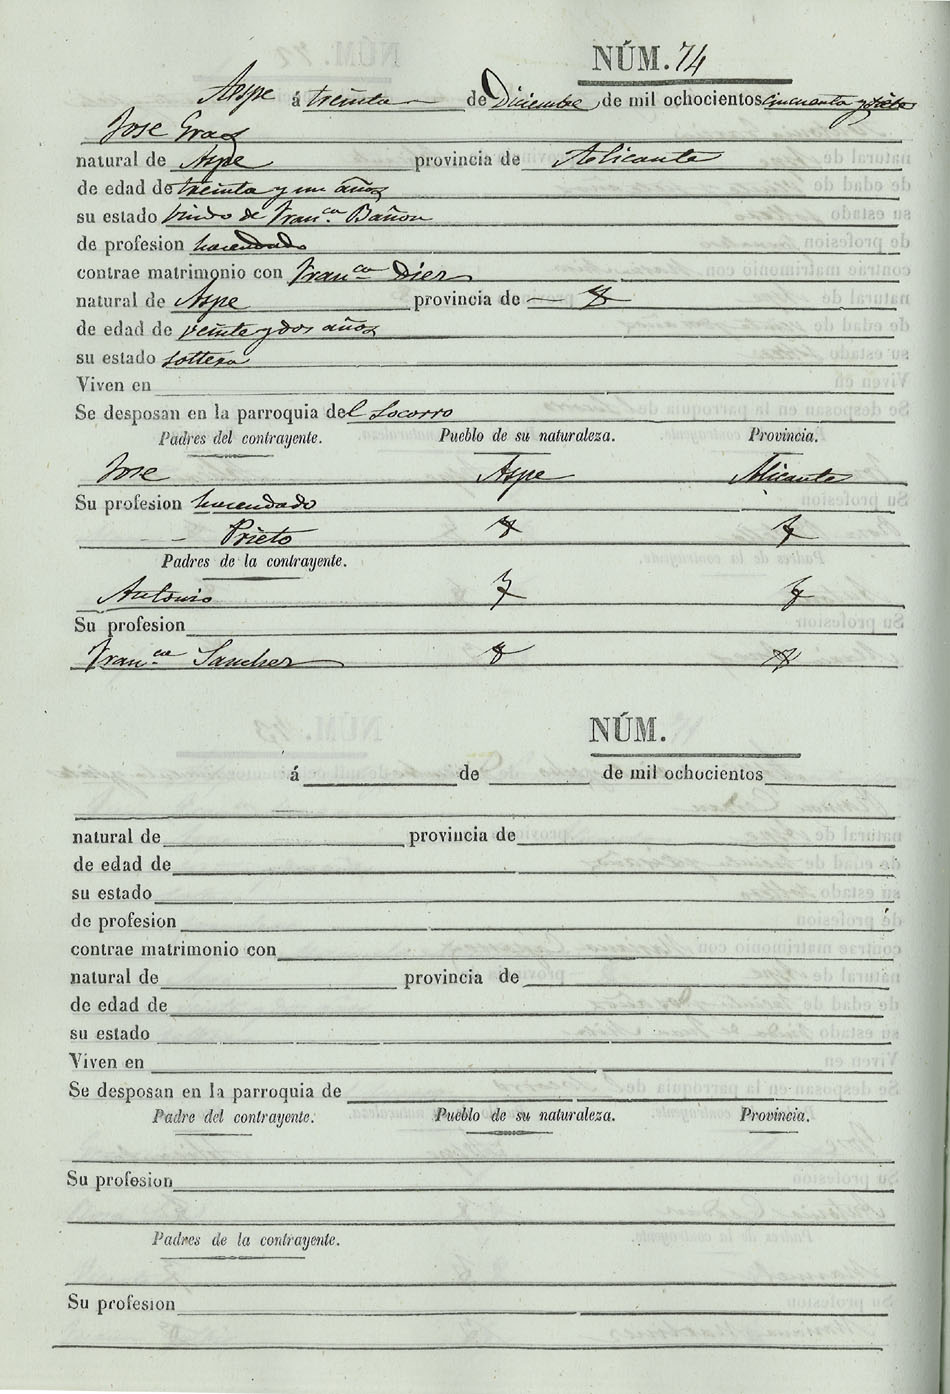 NÚM. 74
Aspe á treinta de Diciembre de mil ochocientos cincuenta y siete
Jose Grao
natural de Aspe provincia de Alicante
de edad de treinta y un años
su estado Viudo de Fran.ca Bañon
de profesion hacendado
contrae matrimonio con Fran.ca Dier
natural de Aspe provincia de
de edad de veinte y dos años
su estado soltera
Viven en
Se desposan en la parroquia del Socorro
Padres del contrayente. Pueblo de su naturaleza. Provincia.
Jose Aspe Alicante
Su profesion hacendado
Prieto
Padres de la contrayente.
Antonio
Su profesion
Fran.ca Sanchez
NÚM.
á de de mil ochocientos
natural de provincia de
de edad de
su estado
de profesion
contrae matrimonio con
natural de provincia de
de edad de
su estado
Viven en
Se desposan en la parroquia de
Padre del contrayente. Pueblo de su naturaleza. Provincia.
Su profesion
Padres de la contrayente.
Su profesion